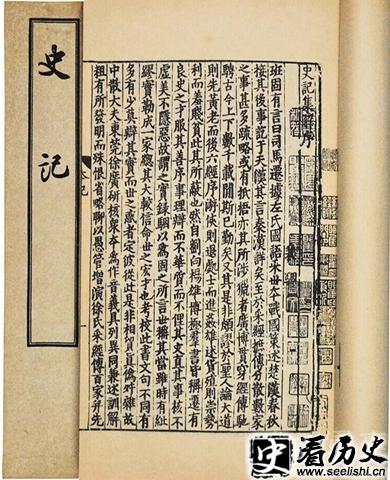 史記
史記集解序
班固有言曰司馬遷據左氏國語采世本戰國策述楚漢春秋
接其後事訖于天漢其言秦漢詳矣至於采經摭傳分散數家
之事甚多疏略或有抵捂亦其所涉獵者廣博貫穿經傳馳
騁古今上下數千載閒斯已勤矣又其是非頗謬於聖人論大道
則先黃老而後六經序游俠則退處士而進姦雄述貨殖則崇勢
利而羞賤貧此其所蔽也然自劉向楊雄博極羣書皆稱遷有
良史之才服其善序事理辯而不華質而不俚其文直其事核不
虛美不隱惡故謂之實錄駰以爲固之所言世稱其當雖時有紕
繆實勒成一家總其大較信命世之宏才也考校此書文句不同有
多有少莫辯其實而世之惑者定彼從此是非相貿真偽舛雜故
中散大夫東莞徐廣研核衆本爲作音義具列異同兼述訓解
粗有所發明而殊恨省略聊以愚管增演徐氏采經傳百家并先
史看历史
www.seelishi.cn